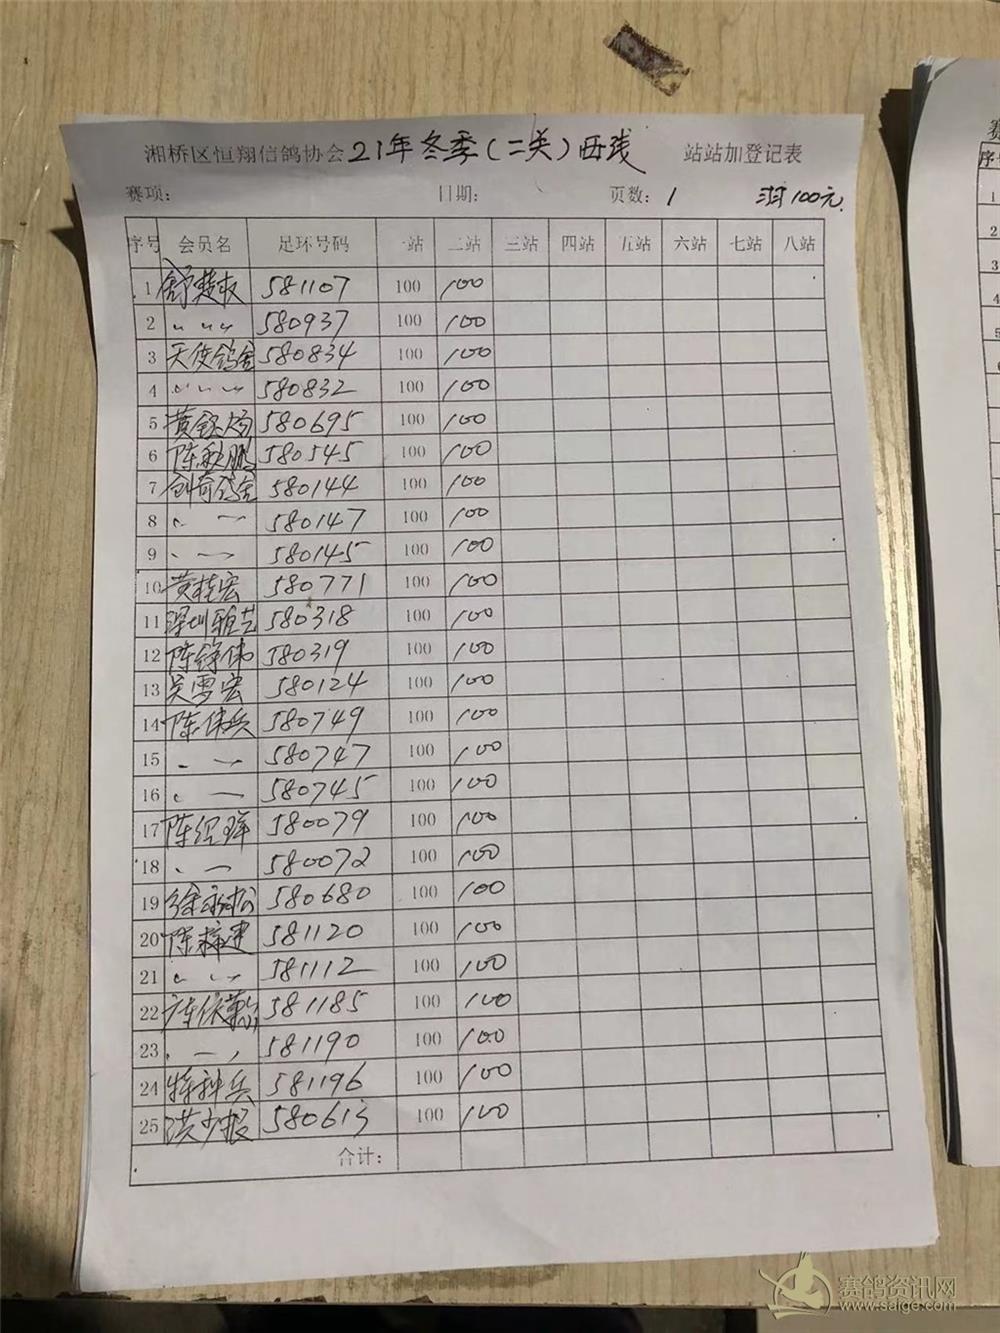 湘桥区恒翔信鸽协会 21年冬季(二关)西线 站站加登记表
赛项: 日期: 页数: 1 100元
序号 会员名 足环号码 一站 二站 三站 四站 五站 六站 七站 八站
1 581107 100 100
2 〃 〃 〃 580937 100 100
3 天使鸽舍 580834 100 100
4 〃 〃 〃 580832 100 100
5 580695 100 100
6 陈秋鹏 580545 100 100
7 创奇鸽舍 580144 100 100
8 〃 580147 100 100
9 〃 580145 100 100
10 黄桂宏 580771 100 100
11 深圳雅芸 580318 100 100
12 陈铮伟 580319 100 100
13 吴雪宏 580124 100 100
14 陈伟兵 580749 100 100
15 〃 580747 100 100
16 〃 580745 100 100
17 580079 100 100
18 〃 580072 100 100
19 徐永松 580680 100 100
20 581120 100 100
21 〃 581112 100 100
22 581185 100 100
23 〃 581190 100 100
24 特种兵 581196 100 100
25 洪少报 580613 100 100
合计:
赛
序号
1
2
3
4
5
赛鸽资讯网
www.saige.com